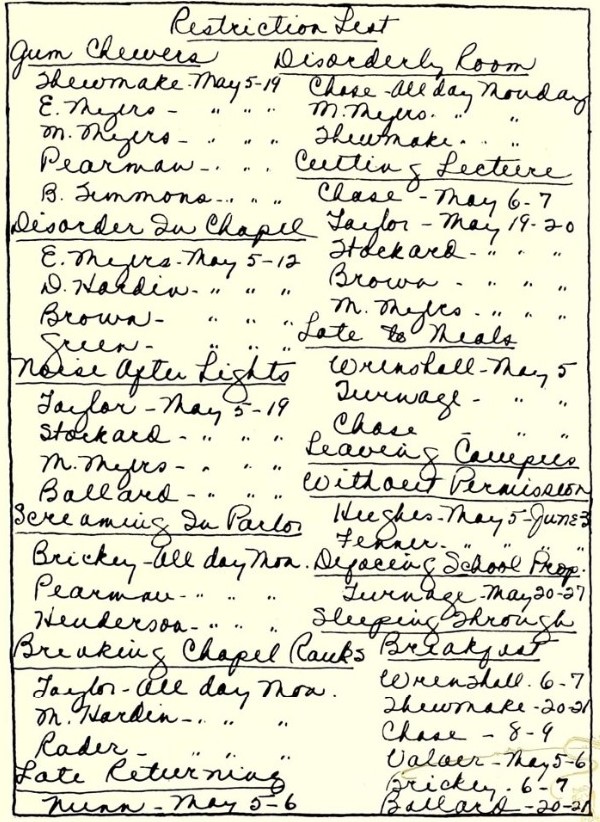 Restriction List
Gum Chewers
Thewmake - May 5-19
E. Myers - " " "
M. Myers - " " "
Pearman - " " "
B. Timmons - " " "
Disorder In Chapel
E. Myers - May 5-12
D. Hardin - " " "
Brown - " " "
Green - " " "
Noise After Lights
Taylor - May 5-19
Stockard - " " "
M. Myers - " " "
Ballard - " " "
Screaming In Parlor
Brickey - All day Mon.
Pearman - " " "
Henderson - " " "
Breaking Chapel Ranks
Taylor - All day Mon.
M. Hardin - " " "
Rader - " " "
Late Returning
Nunn - May 5-6
Disorderly Room
Chase - All day Monday
M. Myers. " "
Thewmake. " "
Cutting Lecture
Chase - May 6-7
Taylor - May 19-20
Stockard - " " "
Brown - " " "
M. Myers - " " "
Late to Meals
Wrenshall - May 5
Turnage - " "
Chase " "
Leaving Campus
Without Permission
Hughes - May 5-June 3
Fenner - " " " "
Defacing School Prop.
Turnage - May 20-27
Sleeping Through
Breakfast
Wrenshall. 6-7
Thewmake - 20-21
Chase - 8-9
- May 5-6
Brickey. 6-7
Ballard - 20-21